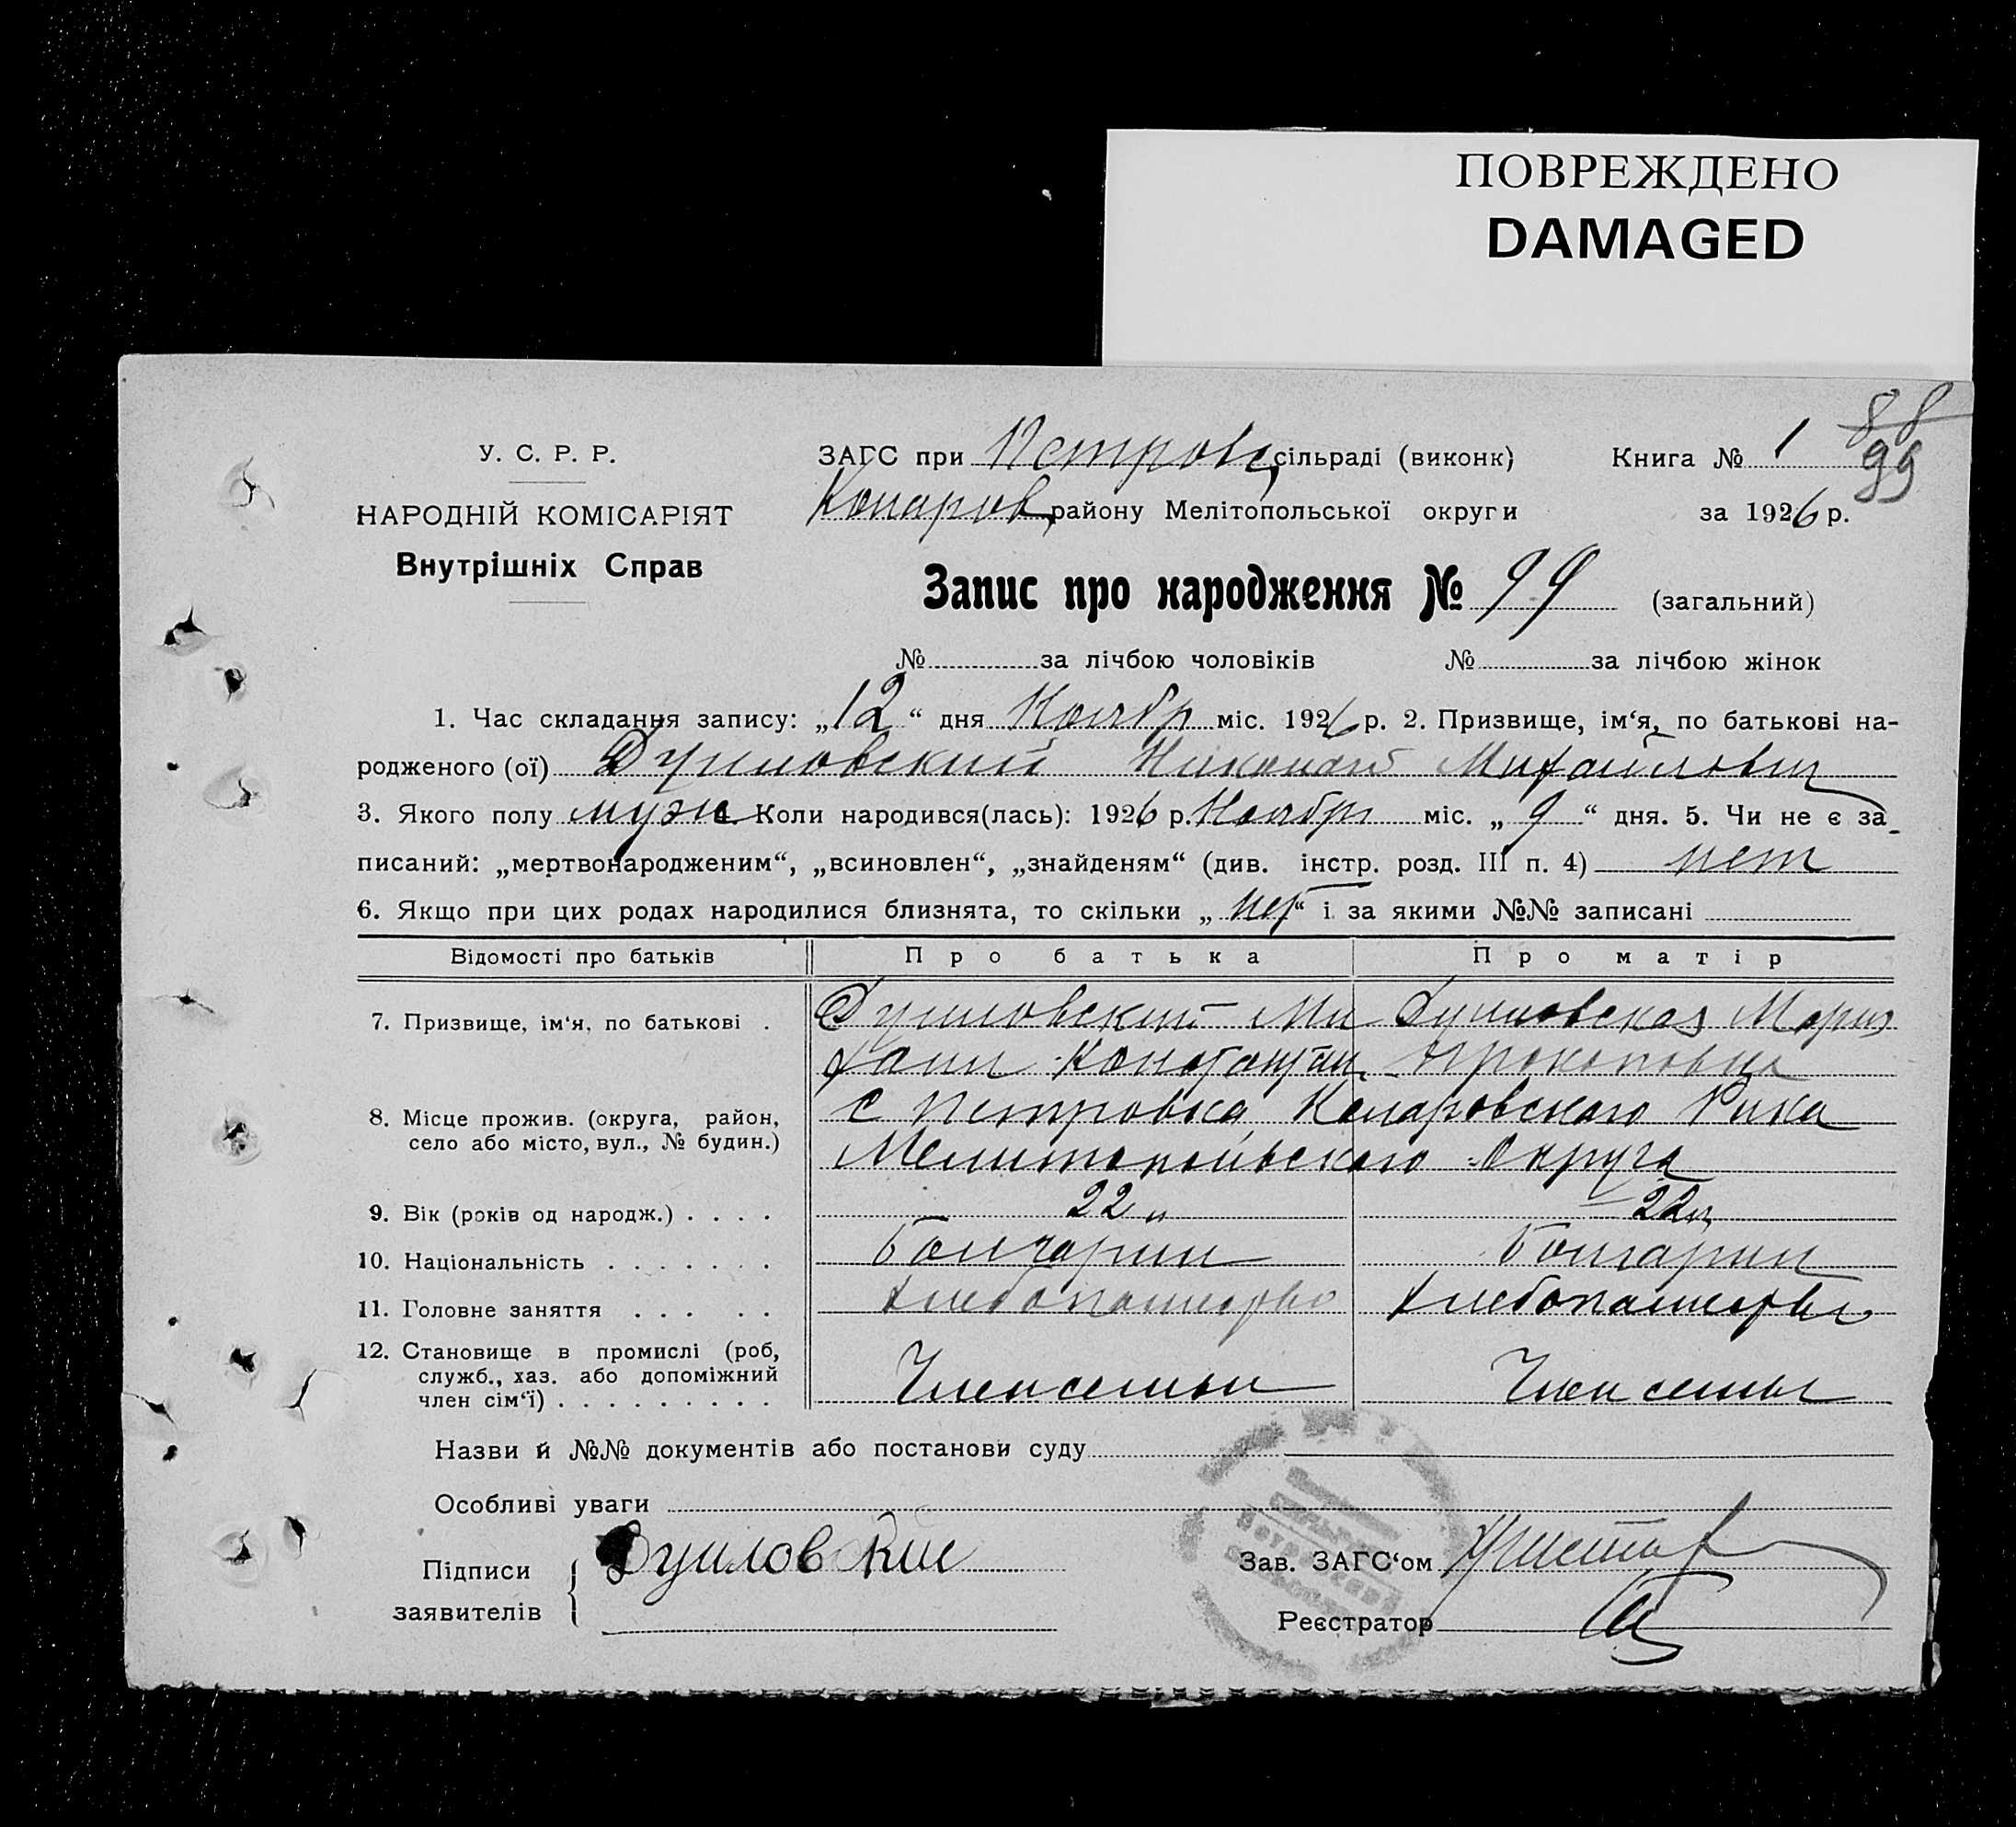 ПОВРЕЖДЕНО
DAMAGED
88
99
У. С. Р. Р.
НАРОДНІЙ КОМІСАРІЯТ
Внутрішніх Справ
ЗАГС при Петровц сільраді (виконк) Книга № 1
Коларов району Мелітопольської округи за 1926 р.
Запис про народження № 99 (загальний)
№ за лічбою чоловіків № за лічбою жінок
1. Час складання запису: „12“ дня Ноябр міс. 1926 р. 2. Призвище, ім‘я, по батькові на-
родженого (ої) Душловский Николай Михайлович
3. Якого полу муж 4. Коли народився(лась): 1926 р. Ноябр міс. „9“ дня. 5. Чи не є за-
писаний: „мертвонародженим“, „всиновлен“, „знайденям“ (див. інстр. розд. III п. 4) нет
6. Якщо при цих родах народилися близнята, то скільки „нет“ і за якими №№ записані
Відомості про батьків Про батька Про матір
7. Призвище, ім‘я, по батькові . Душловский Ми Душловская Мария
хаил Константин. Прокоповна
8. Місце прожив. (округа, район, село або місто, вул., № будин.) с Петровка Коларовского Рика
Мелитопольского Округа
9. Вік (років од народж.) . . . . 22 22
10. Національність . . . . . . . Болгарин Болгарин
11. Головне заняття . . . . . Хлебопашество Хлебопашество
12. Становище в промислі (роб,
служб., хаз. або допоміжний
член сім‘ї) . . . . . . . . . Член семьи Член семьи
Назви й №№ документів або постанови суду
Особливі уваги
Підписи
заявителів
Зав. ЗАГС‘ом
Реєстратор